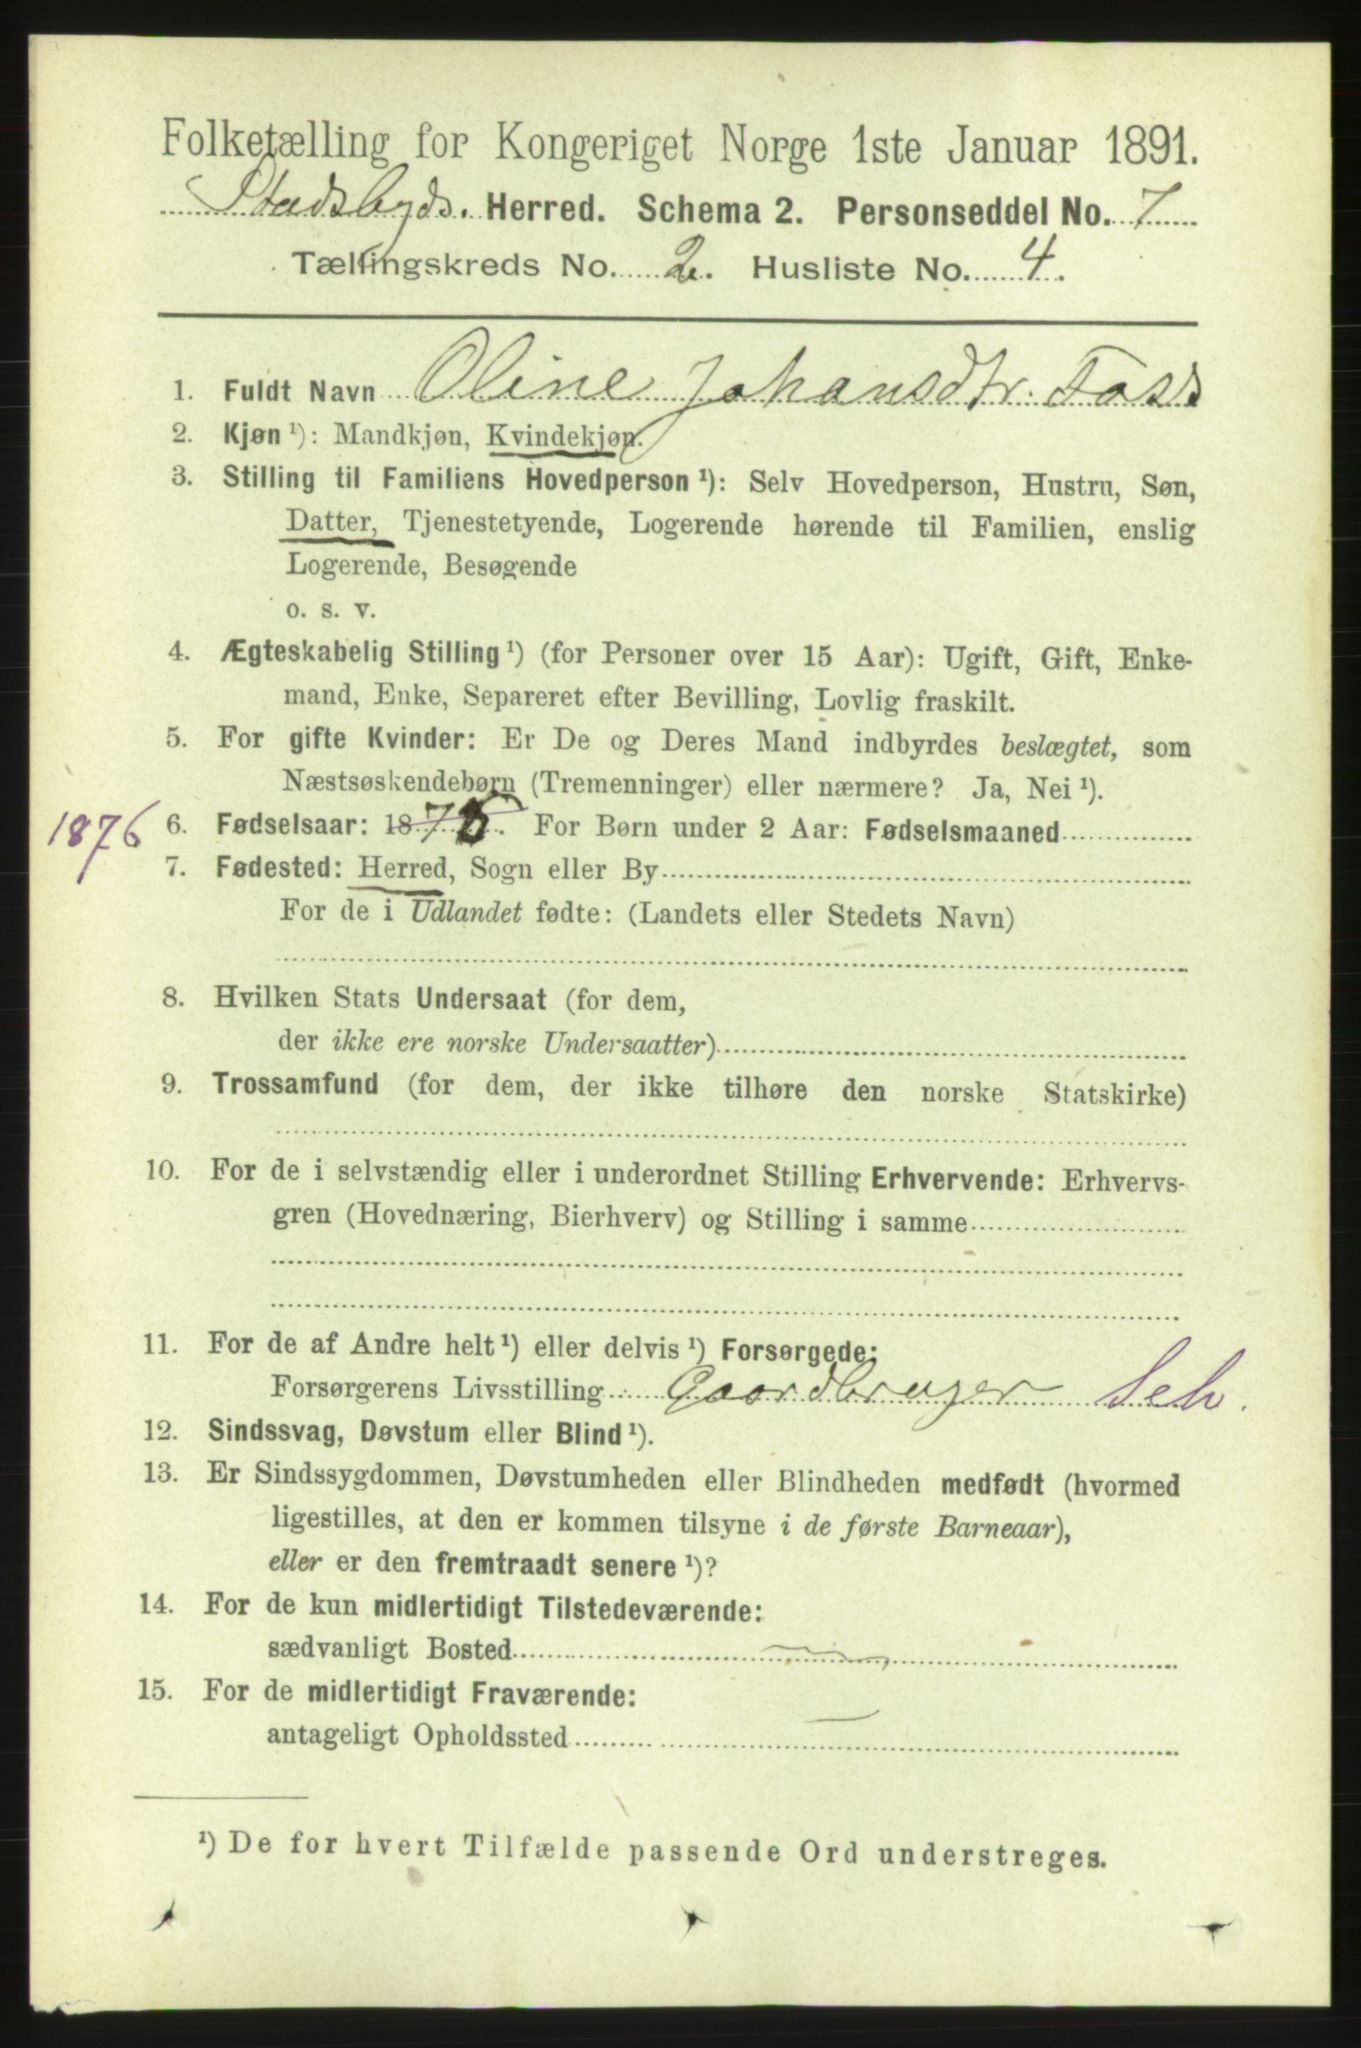 Folketælling for Kongeriget Norge 1ste Januar 1891.
Stadsbyds. Herred. Schema 2. Personseddel No. 7
Tællingskreds No. 2. Husliste No. 4.
1. Fuldt Navn Oline Johansdtr. Foss
2. Kjøn ¹): Mandkjøn, Kvindekjøn.
3. Stilling til Familiens Hovedperson ¹): Selv Hovedperson, Hustru, Søn,
Datter, Tjenestetyende, Logerende hørende til Familien, enslig
Logerende, Besøgende
o. s. v.
4. Ægteskabelig Stilling ¹) (for Personer over 15 Aar): Ugift, Gift, Enke-
mand, Enke, Separeret efter Bevilling, Lovlig fraskilt.
5. For gifte Kvinder: Er De og Deres Mand indbyrdes beslægtet, som
Næstsøskendebørn (Tremenninger) eller nærmere? Ja, Nei ¹).
1876 6. Fødselsaar: 1876. For Børn under 2 Aar: Fødselsmaaned
7. Fødested: Herred, Sogn eller By
For de i Udlandet fødte: (Landets eller Stedets Navn)
8. Hvilken Stats Undersaat (for dem,
der ikke ere norske Undersaatter)
9. Trossamfund (for dem, der ikke tilhøre den norske Statskirke)
10. For de i selvstændig eller i underordnet Stilling Erhvervende: Erhvervs-
gren (Hovednæring, Bierhverv) og Stilling i samme
11. For de af Andre helt ¹) eller delvis ¹) Forsørgede:
Forsørgerens Livsstilling Gaardbruger Selv.
12. Sindssvag, Døvstum eller Blind ¹).
13. Er Sindssygdommen, Døvstumheden eller Blindheden medfødt (hvormed
ligestilles, at den er kommen tilsyne i de første Barneaar),
eller er den fremtraadt senere ¹)?
14. For de kun midlertidigt Tilstedeværende:
sædvanligt Bosted
15. For de midlertidigt Fraværende:
antageligt Opholdssted
¹) De for hvert Tilfælde passende Ord understreges.